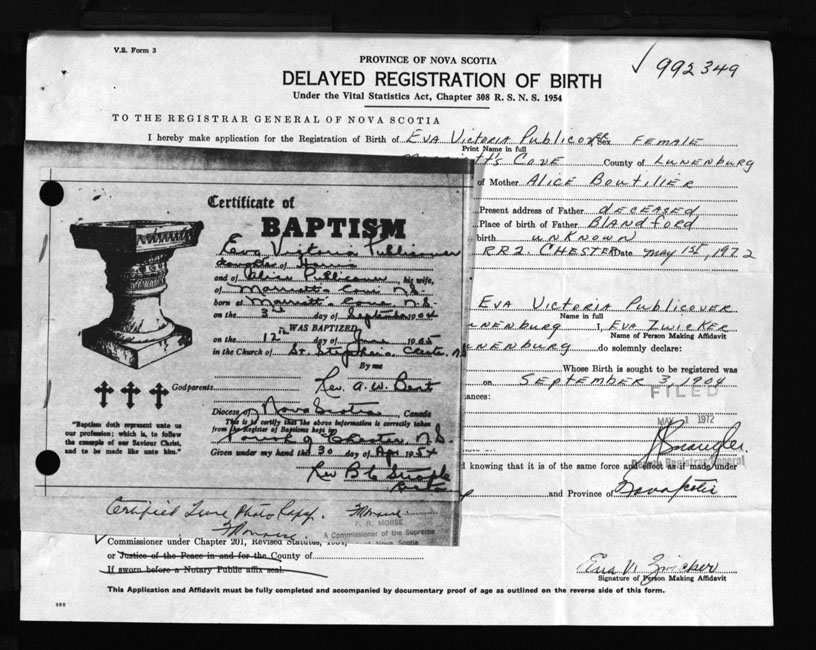 V.S. Form 3
PROVINCE OF NOVA SCOTIA
DELAYED REGISTRATION OF BIRTH
Under the Vital Statistics Act, Chapter 308 R. S. N. S. 1954
✓ 992349
TO THE REGISTRAR GENERAL OF NOVA SCOTIA
I hereby make application for the Registration of Birth of EVA VICTORIA PUBLICOVER Sex FEMALE
Print Name in full
COVE County of LUNENBURG
of Mother ALICE BOUTILIER
Present address of Father DECEASED
Place of birth of Father BLANDFORD
birth UNKNOWN
RR2. CHESTER Date MAY 1ST, 1972
EVA VICTORIA PUBLICOVER
Name in full
I, EVA ZWICKER
Name of Person Making Affidavit
do solemnly declare:
Whose Birth is sought to be registered was
on SEPTEMBER 3, 1904
FILED
MAY 1 1972
Registrar General
knowing that it is of the same force and effect as if made under
and Province of Nova Scotia
Certificate of
BAPTISM
Eva Victoria Publicover
daughter of Harris
and of Alice Publicover, his wife,
of Marriotts Cove N.S.
born at Marriotts Cove N.S.
on the 3rd day of September 1904
WAS BAPTIZED
on the 12th day of June 1905
in the Church of St. Stephens Chester N.S
By me
Godparents
Rev. A. W.
Diocese of Nova Scotia, Canada
This is to certify that the above information is correctly taken
from the Register of Baptisms kept in
Parish of Chester, N.S.
Given under my hand this 30 day of Apr 1954
Rev B C
Rector
"Baptism doth represent unto us
our profession; which is, to follow
the example of our Saviour Christ,
and to be made like unto him."
Certified True Photo Copy.
F. R. MORSE
A Commissioner of the Supreme
Nova Scotia
✓ Commissioner under Chapter 201, Revised Statutes,
or Justice of the Peace in and for the County of
If sworn before a Notary Public affix seal.
Eva V. Zwicker
Signature of Person Making Affidavit
This Application and Affidavit must be fully completed and accompanied by documentary proof of age as outlined on the reverse side of this form.